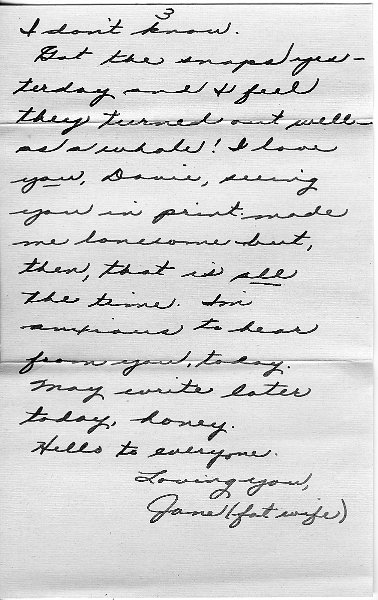 3
I don't know.
Got the snaps yes-
terday and I feel
they turned out well-
as a whole! I love
you, Davie, seeing
you in print made
me lonesome but,
then, that is all
the time. I'm
anxious to hear
from you, today.
May write later
today, honey.
Hello to everyone.
Loving you,
Jane (fat wife)